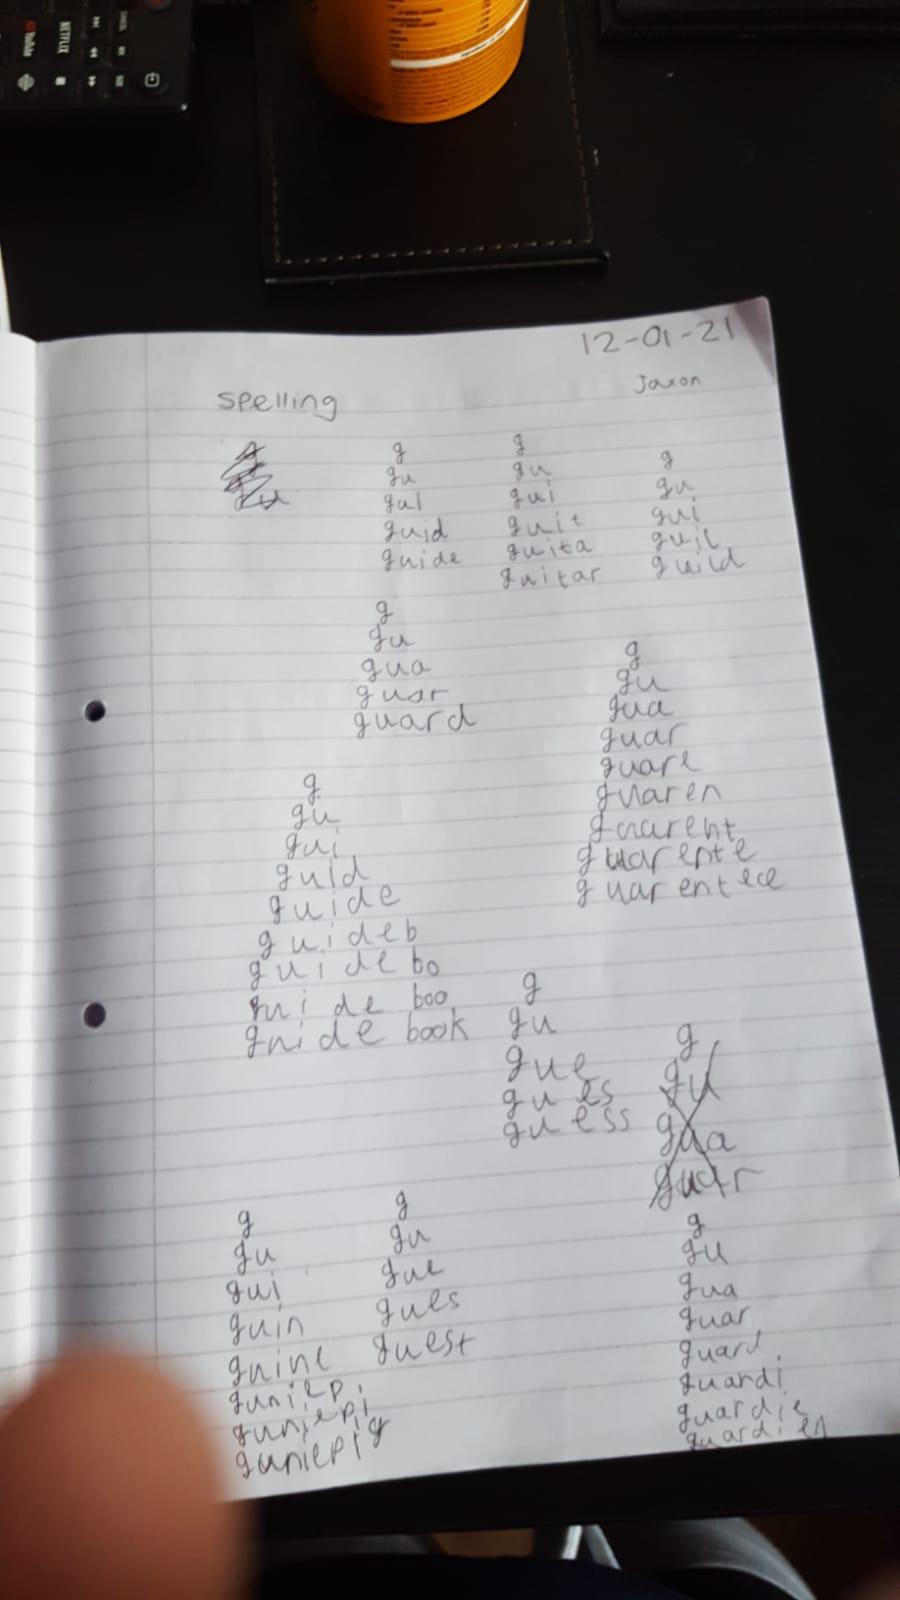 NETFLIX
12-01-21
Jaxon
Spelling
g
gu
gui
guid
guide
g
gu
gui
guit
guita
guitar
g
gu
gui
guil
guild
g
gu
gua
guar
guard
g
gu
gua
guar
guare
guaren
guarent
guarente
guarentece
g
gu
gui
guid
guide
guideb
guide bo
guide boo
guide book
g
gu
gue
gues
guess
g
gu
gua
guar
g
gu
gui
guin
guine
guniep
guniepi
guniepig
g
gu
gue
gues
guest
g
gu
gua
guar
guard
guardi
guardie
guardien